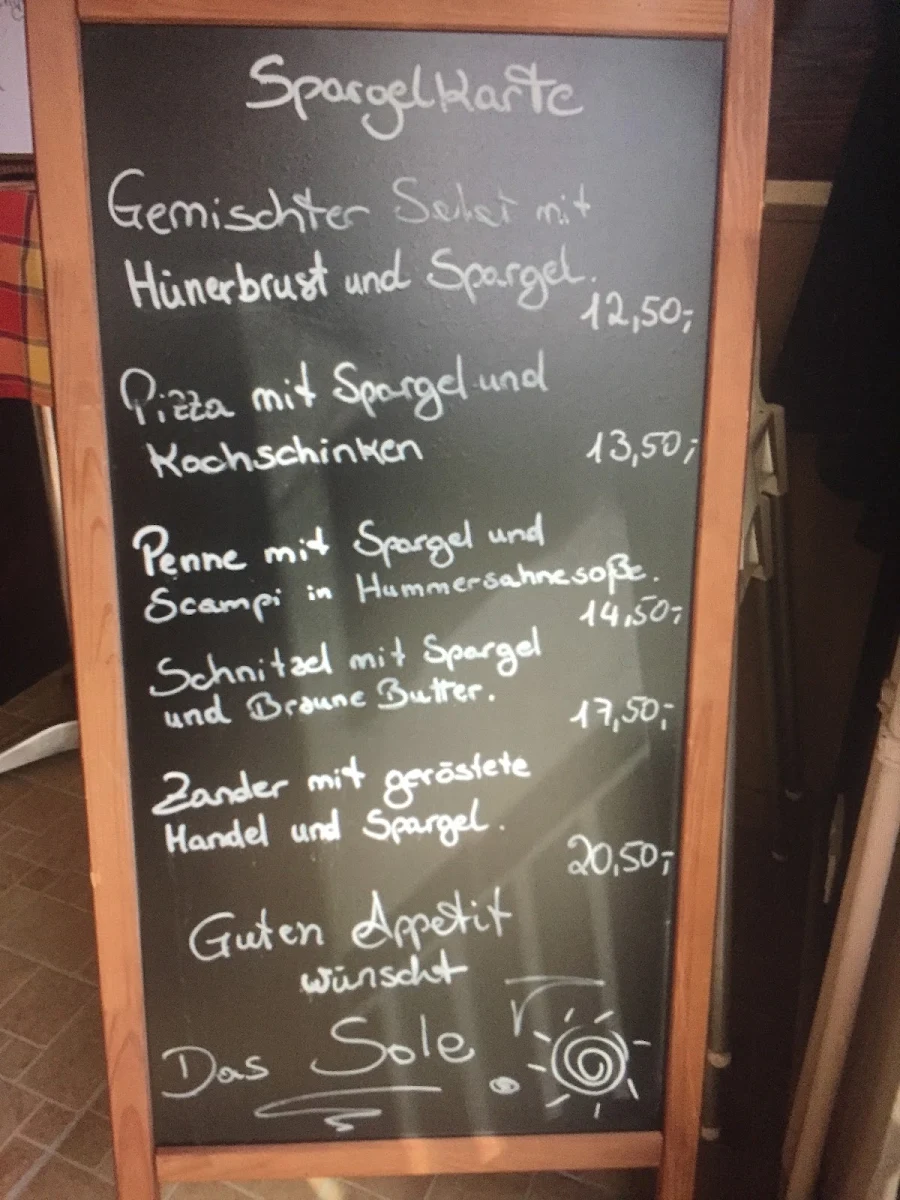 Spargelkarte
Gemischter Salat mit
Hünerbrust und Spargel.
12,50,-
Pizza mit Spargel und
Kochschinken 13,50,-
Penne mit Spargel und
Scampi in Hummersahnesoße.
14,50,-
Schnitzel mit Spargel
und Braune Butter.
17,50,-
Zander mit geröstete
Mandel und Spargel.
20,50,-
Guten Appetit
wünscht
Das Sole